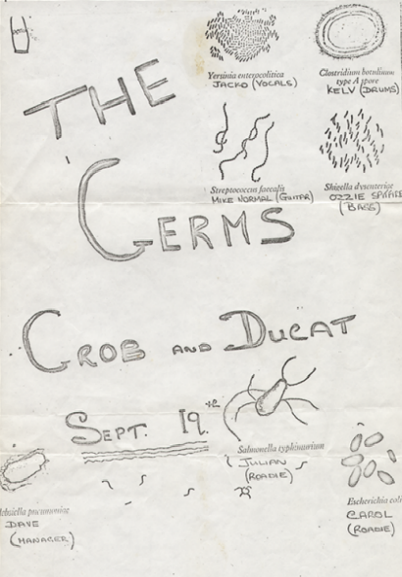 Yersinia enterocolitica
JACKO (VOCALS)
Clostridium botulinum
type A spore
KELV (DRUMS)
THE
Streptococcus faecalis
MIKE NORMAL (GUITAR)
Shigella dysenteriae
OZZIE
(BASS)
GERMS
GROB AND DUCAT
SEPT. 19TH
Salmonella typhimurium
JULIAN
(ROADIE)
lebsiella pneumoniae
DAVE
(MANAGER)
Escherichia coli
CAROL
(ROADIE)